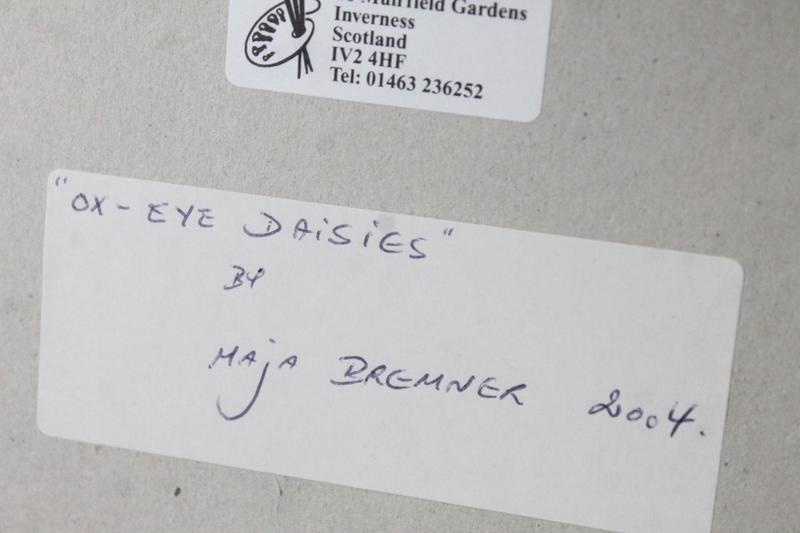 Muirfield Gardens
Inverness
Scotland
IV2 4HF
Tel: 01463 236252
"OX-EYE DAISIES"
BY
MAJA BREMNER 2004.